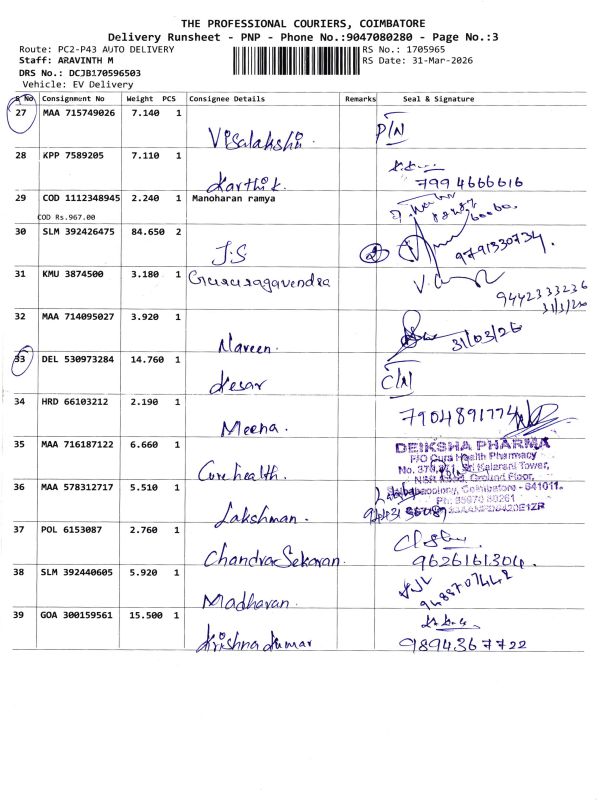 THE PROFESSIONAL COURIERS, COIMBATORE
Delivery Runsheet - PNP - Phone No.:9047080280 - Page No.:3
Route: PC2-P43 AUTO DELIVERY
RS No.: 1705965
Staff: ARAVINTH M
RS Date: 31-Mar-2026
DRS No.: DCJB170596503
Vehicle: EV Delivery
S No Consignment No Weight PCS Consignee Details Remarks Seal & Signature
27 MAA 715749026 7.140 1
Visalakshi. P/N
28 KPP 7589205 7.110 1
Karthik. 799 4666616
29 COD 1112348945 2.240 1 Manoharan ramya
COD Rs.967.00
30 SLM 392426475 84.650 2
J.S 2 9791330734.
31 KMU 3874500 3.180 1 Gururagavendra
9442333236
31/3/26
32 MAA 714095027 3.920 1
Naveen. 31/03/26
33 DEL 530973284 14.760 1
Kesar C/N
34 HRD 66103212 2.190 1
Meena. 7904891774
35 MAA 716187122 6.660 1
Cure health.
DEIKSHA PHARMA
F/O Cura Health Pharmacy
Sri Kalarani Tower,
Ground Floor,
Coimbatore - 641011.
36 MAA 578312717 5.510 1
Lakshman.
37 POL 6153087 2.760 1
Chandra Sekaran. 9626161304.
38 SLM 392440605 5.920 1
Madhavan. 9488707442
39 GOA 300159561 15.500 1
Krishna Kumar 9894367722